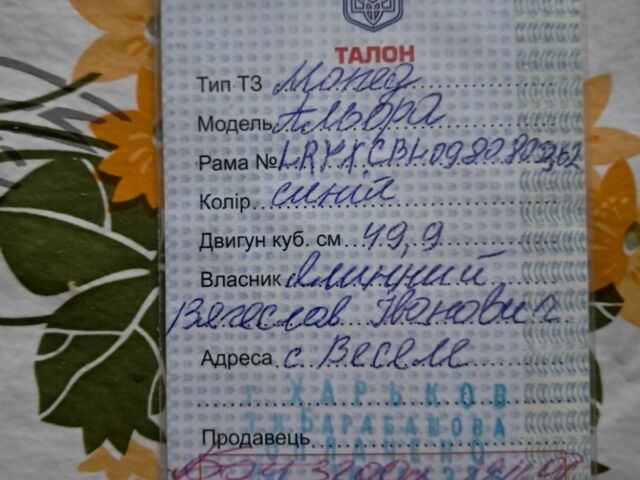 ТАЛОН
Тип ТЗ Мопед
Модель Альфа
Рама № LRYXCBL0980805362
Колір синій
Двигун куб. см 49,9
Власник Ялинний
Вячеслав Іванович
Адреса с. Веселе
г ХАРЬКОВ
Т.Ц. БАРАБАШОВА
Продавець